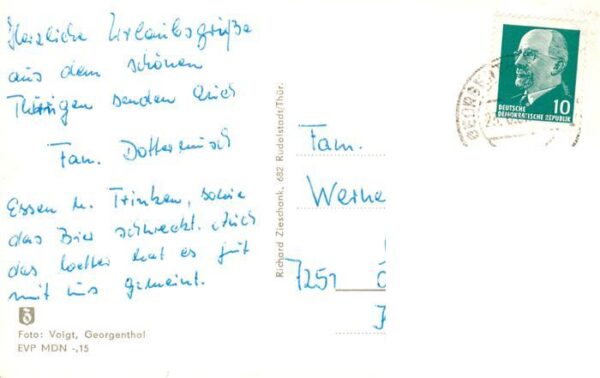 Herzliche Urlaubsgrüße
aus dem schönen
Thüringen senden Euch
Fam.
Essen u. Trinken, sowie
das Bier schmeckt. Auch
das Wetter hat es gut
mit uns gemeint.
Foto: Voigt, Georgenthal
EVP MDN -,15
Richard Zieschank, 682 Rudolstadt/Thür.
10
DEUTSCHE
DEMOKRATISCHE REPUBLIK
Fam.
Werne
7251